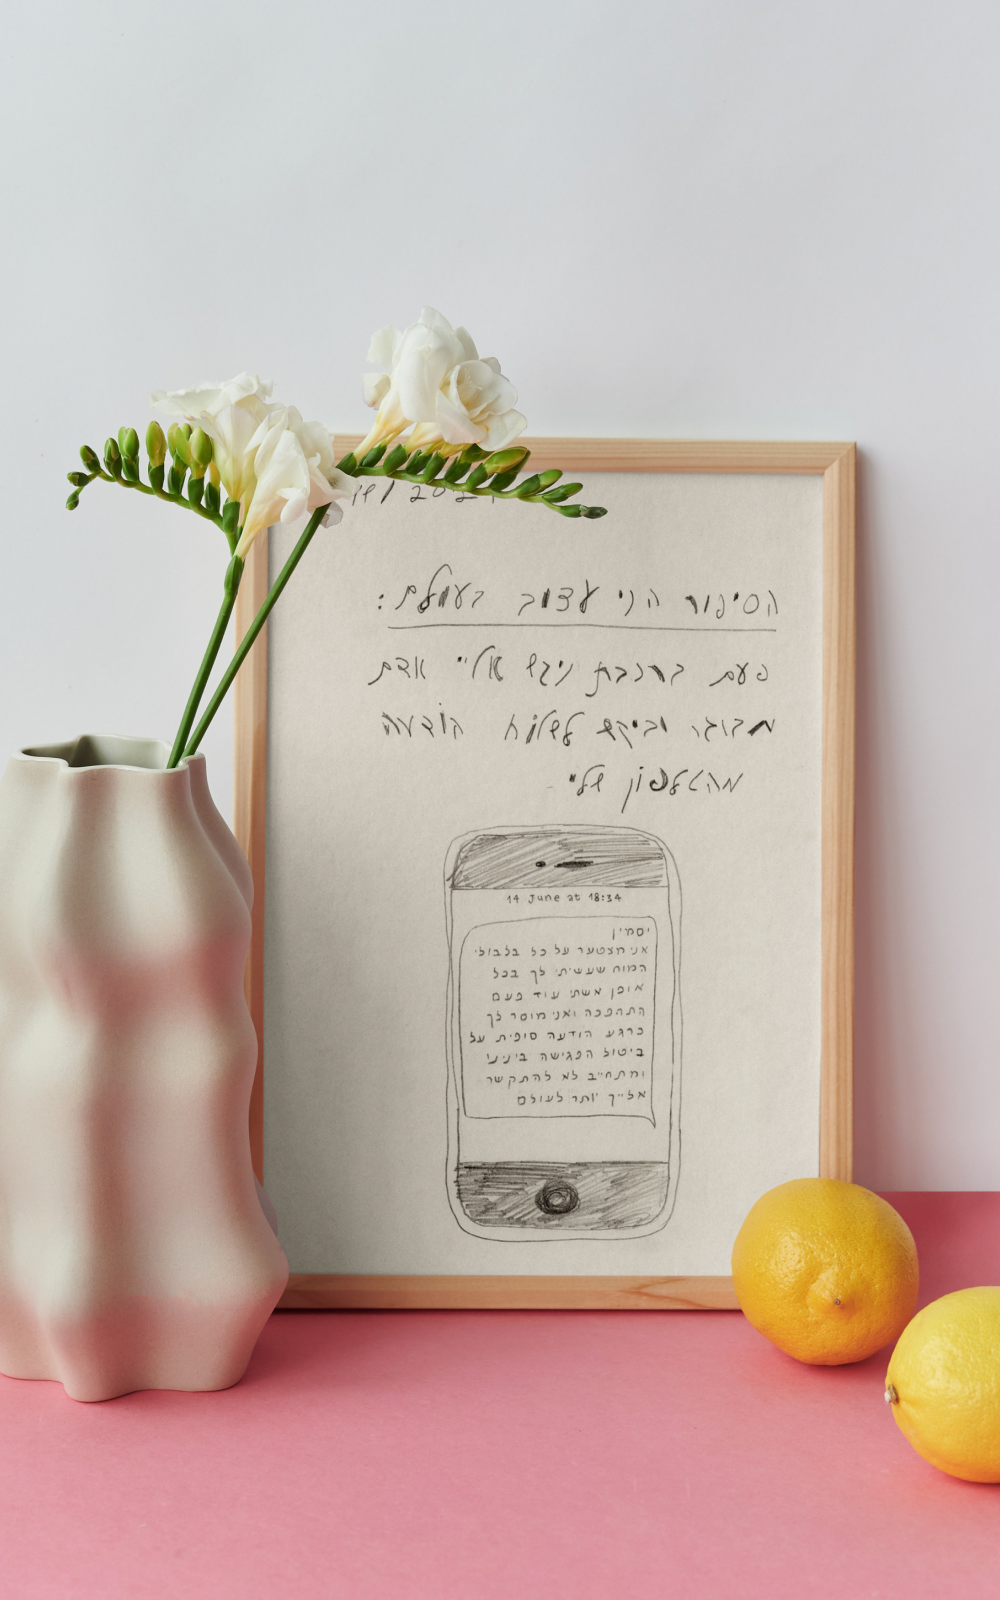 הסיפור הכי עצוב בעולם:
פעם ברכבת ניגש אליי אדם
מבוגר וביקש לשלוח הודעה
מהטלפון שלי
14 June at 18:34
יסמין
אני מצטער על כל בלבולי
המוח שעשיתי לך בכל
אופן אשתי עוד פעם
התהפכה ואני מוסר לך
כרגע הודעה סופית על
ביטול הפגישה בינינו
ומתחייב לא להתקשר
אלייך יותר לעולם